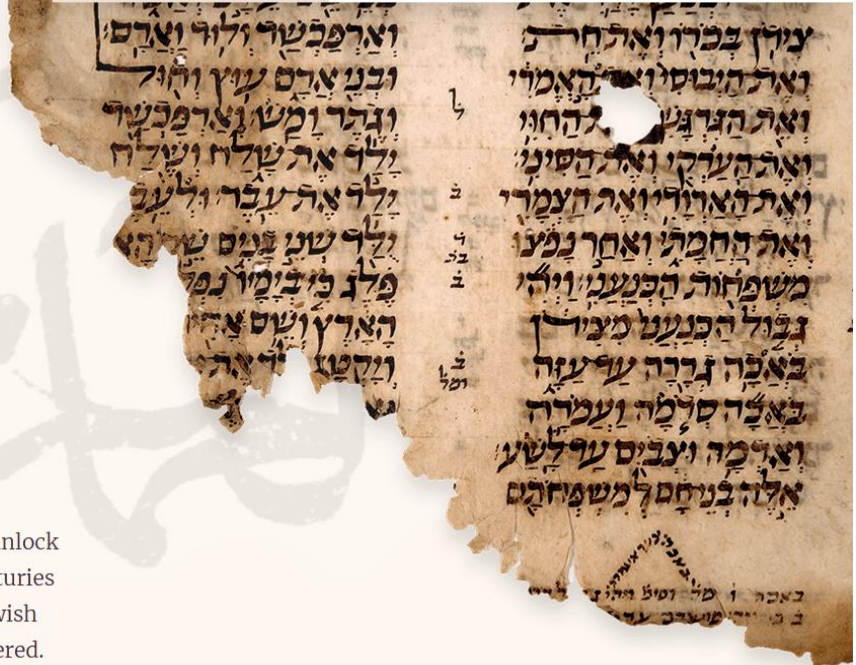 צִידֹן בְּכֹרוֹ וְאֶת חֵת
וְאֶת הַיְבוּסִי וְאֶת הָאֱמֹרִי
וְאֵת הַגִּרְגָּשִׁי הַחִוִּי
וְאֶת הַעַרְקִי וְאֶת הַסִּינִי
וְאֶת הָאַרְוָדִי וְאֶת הַצְּמָרִי
וְאֶת הַחֲמָתִי וְאַחַר נָפֹצוּ
מִשְׁפְּחוֹת הַכְּנַעֲנִי וַיְהִי
גְּבוּל הַכְּנַעֲנִי מִצִּידֹן
בֹּאֲכָה גְרָרָה עַד עַזָּה
בֹּאֲכָה סְדֹמָה וַעֲמֹרָה
וְאַדְמָה וּצְבֹיִם עַד לָשַׁע
אֵלֶּה בְנֵי חָם לְמִשְׁפְּחֹתָם
וְאַרְפַּכְשַׁד וְלוּד וַאֲרָם
וּבְנֵי אֲרָם עוּץ וְחוּל
וְגֶתֶר וָמַשׁ וְאַרְפַּכְשַׁד
יָלַד אֶת שָׁלַח וְשֶׁלַח
יָלַד אֶת עֵבֶר וּלְעֵב
יֻלַּד שְׁנֵי בָנִים
פֶּלֶג כִּי בְיָמָיו נִפְלְ
הָאָרֶץ וְשֵׁם אָחִי
וְיָקְטָן
ל
ב
ב
ב
nlock
turies
wish
ered.